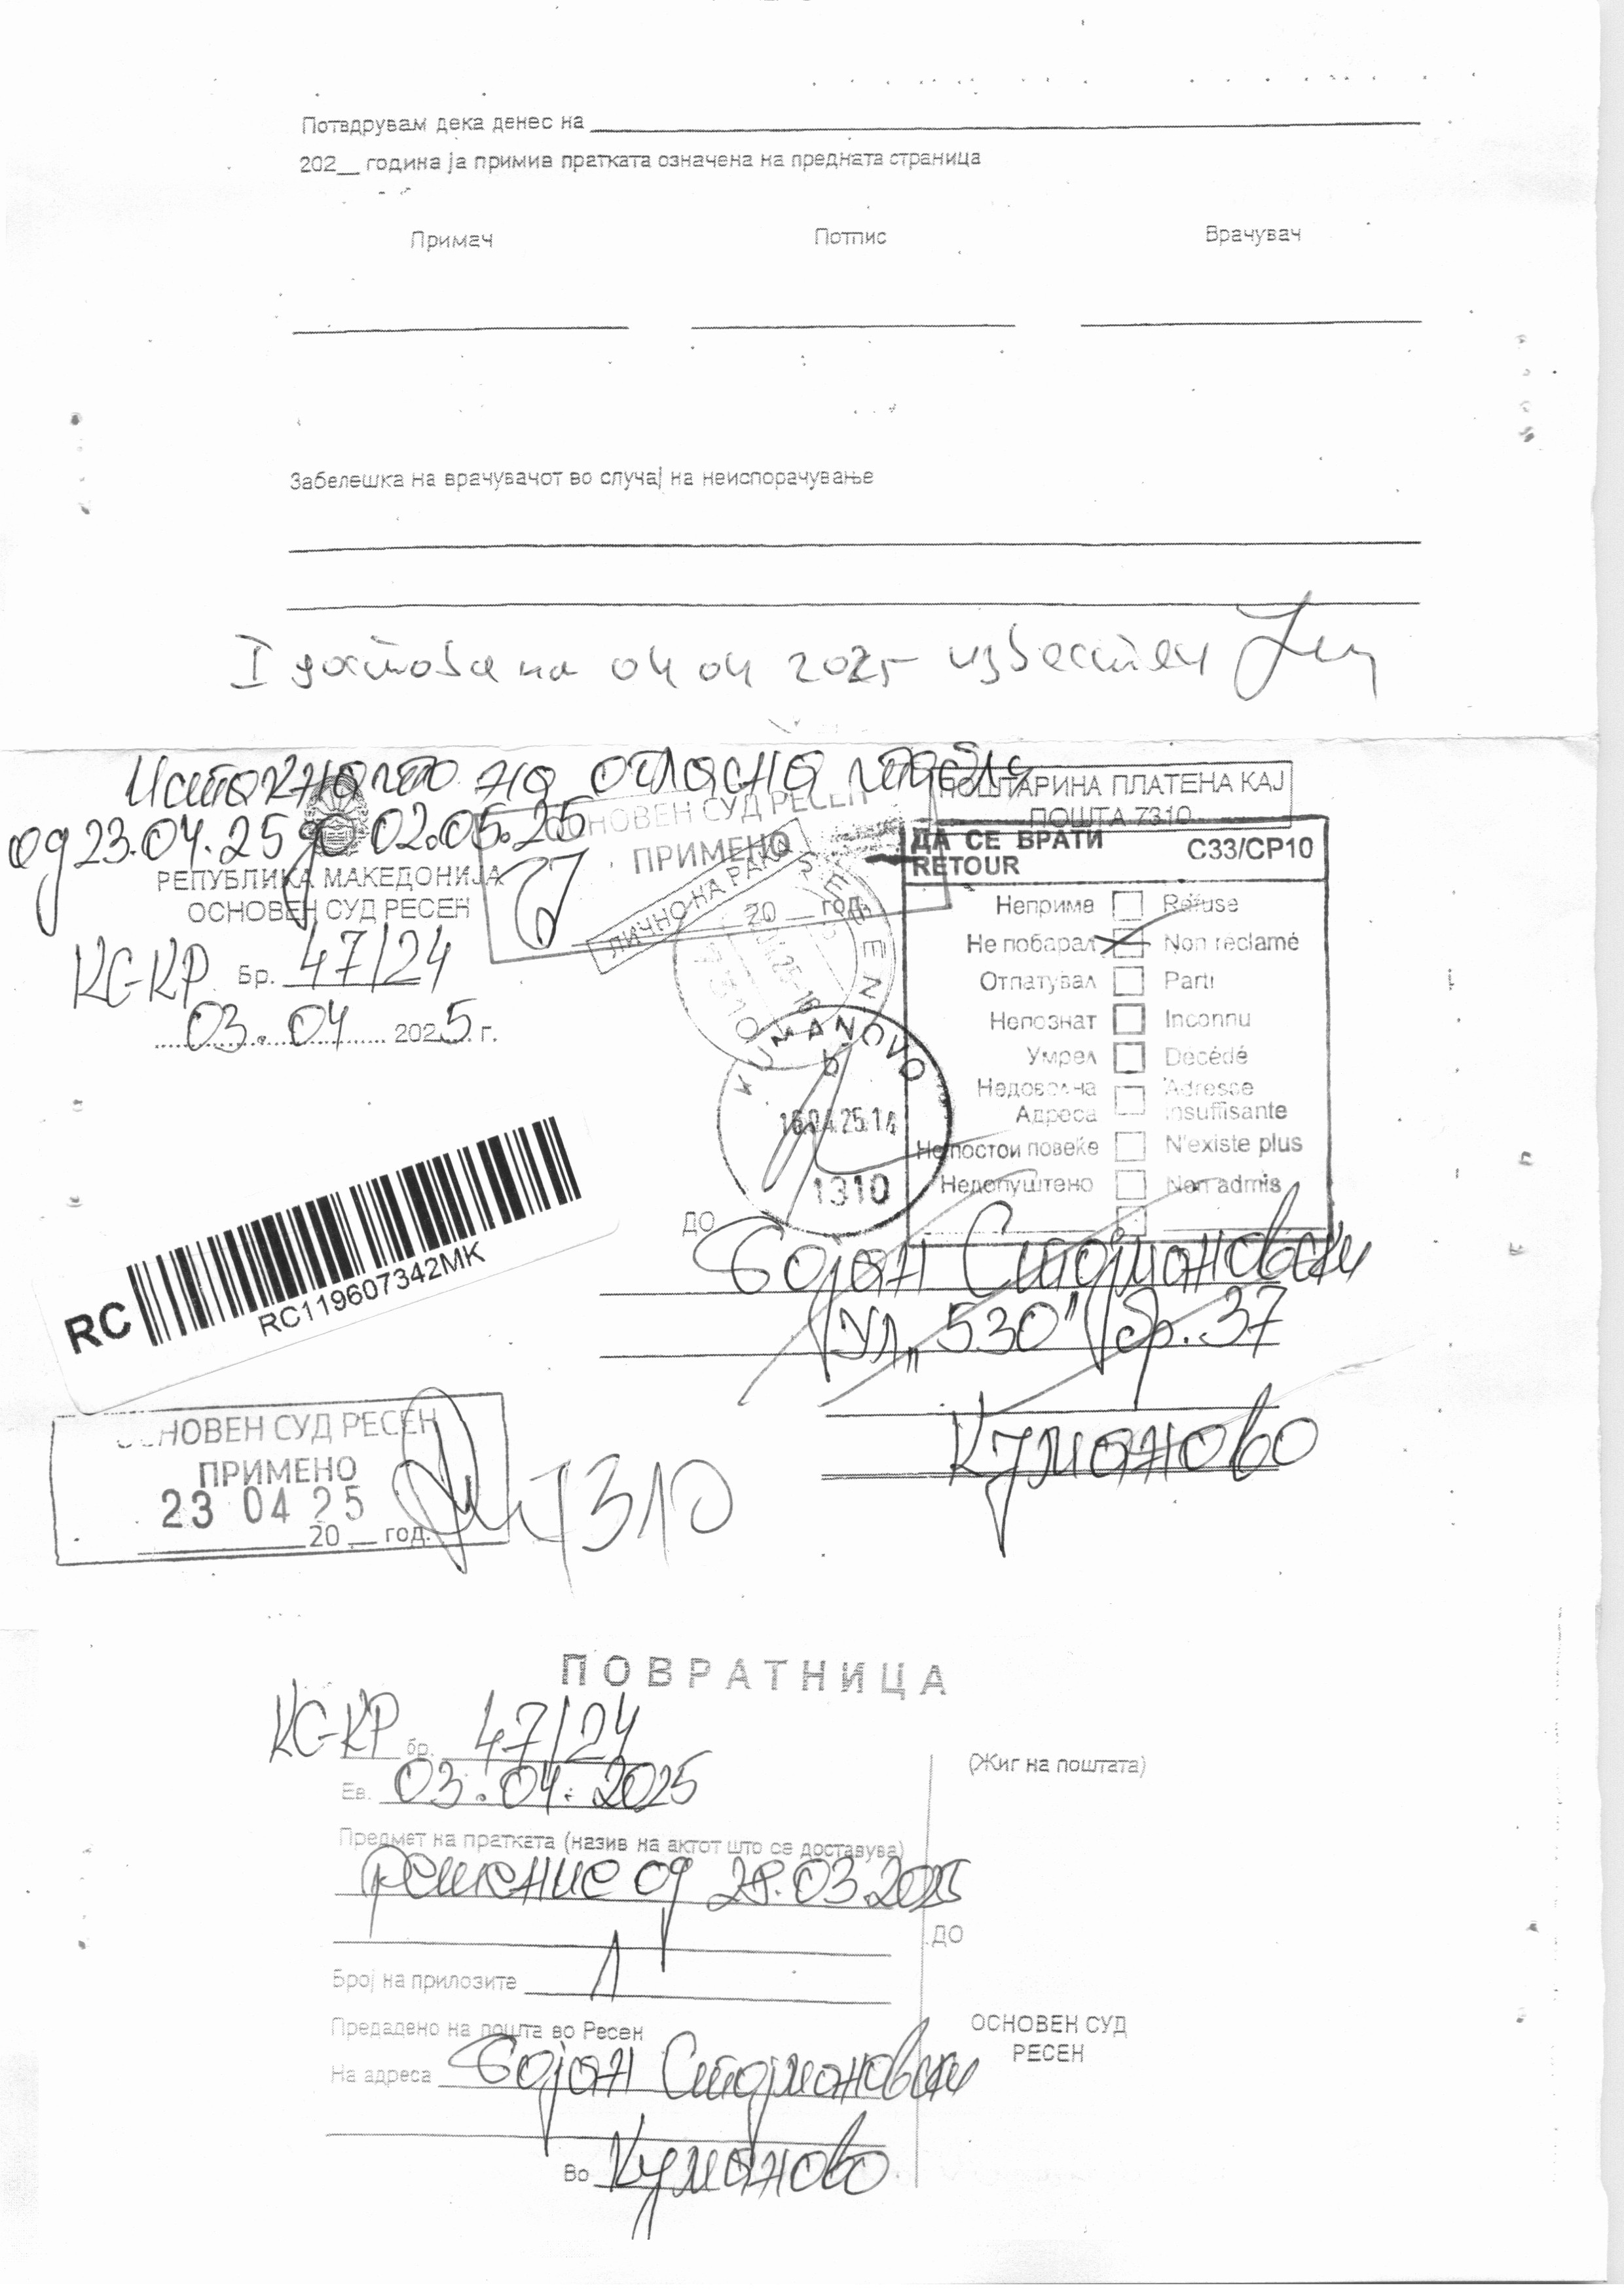 Потврдувам дека денес на
202__ година ја примив пратката означена на предната страница
Примач Потпис Врачувач
Забелешка на врачувачот во случај на неиспорачување
I достава на 04 04 2025 известен
Истакнато на огласна табла
од 23.04.25 до 02.05.25
РЕПУБЛИКА МАКЕДОНИЈА
ОСНОВЕН СУД РЕСЕН
КС-КР Бр. 47/24
03. 04 2025 г.
ОСНОВЕН СУД РЕСЕН
ПРИМЕНО
20 __ год.
ЛИЧНО НА РАКА
ПОШТАРИНА ПЛАТЕНА КАЈ
ПОШТА 7310
ДА СЕ ВРАТИ
RETOUR
C33/CP10
Неприма Refuse
Не побарал Non réclamé
Отпатувал Parti
Непознат Inconnu
Умрел Décédé
Недоволна Адреса Adresse insuffisante
Не постои повеќе N'existe plus
Недопуштено Non admis
KUMANOVO
16.04.25.14
1310
RC
RC119607342MK
ДО
Бојан Стојмановски
Ул „530" бр. 37
Куманово
ОСНОВЕН СУД РЕСЕН
ПРИМЕНО
23 04 25
20 __ год.
7310
ПОВРАТНИЦА
КС-КР бр. 47/24
Ев. 03. 04. 2025
(Жиг на поштата)
Предмет на пратката (назив на актот што се доставува)
Решение од 28.03.2025
ДО
Број на прилозите 1
Предадено на пошта во Ресен
ОСНОВЕН СУД
РЕСЕН
На адреса Бојан Стојмановски
Во Куманово